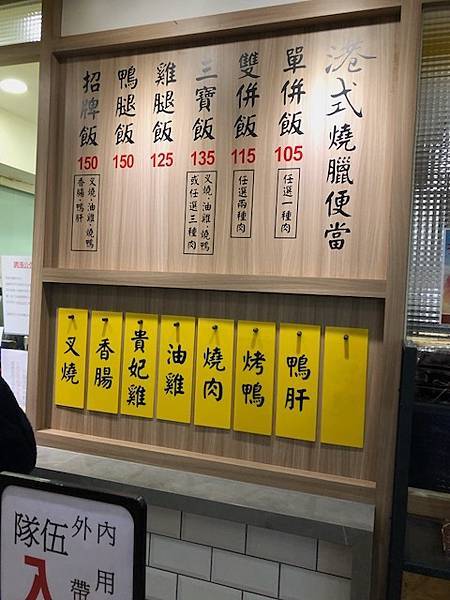 港式燒臘便當
單併飯
105
任選一種肉
雙併飯
115
任選兩種肉
三寶飯
135
叉燒・油雞・燒鴨
或任選三種肉
雞腿飯
125
鴨腿飯
150
招牌飯
150
叉燒・油雞・燒鴨
香腸・鴨肝
鴨肝
烤鴨
燒肉
油雞
貴妃雞
香腸
叉燒
內用
外帶
隊伍
入